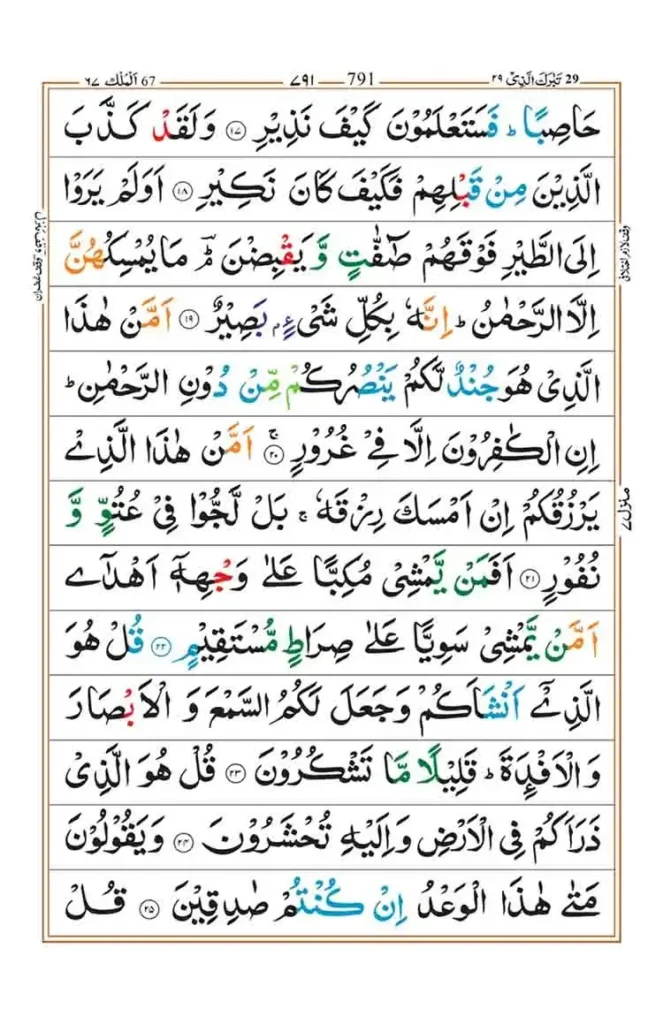 29 تَبٰرَكَ الَّذِیْ ٢٩ 791 ٧٩١ 67 اَلْمُلْك ٦٧
حَاصِبًا ؕ فَسَتَعْلَمُوْنَ كَیْفَ نَذِیْرِ ۝١٧ وَ لَقَدْ كَذَّبَ
الَّذِیْنَ مِنْ قَبْلِهِمْ فَكَیْفَ كَانَ نَكِیْرِ ۝١٨ اَوَلَمْ یَرَوْا
اِلَی الطَّیْرِ فَوْقَهُمْ صٰٓفّٰتٍ وَّ یَقْبِضْنَ ؔۘؕ مَا یُمْسِكُهُنَّ
اِلَّا الرَّحْمٰنُ ؕ اِنَّهٗ بِكُلِّ شَیْءٍۭ بَصِیْرٌ ۝١٩ اَمَّنْ هٰذَا
الَّذِیْ هُوَ جُنْدٌ لَّكُمْ یَنْصُرُكُمْ مِّنْ دُوْنِ الرَّحْمٰنِ ؕ
اِنِ الْكٰفِرُوْنَ اِلَّا فِیْ غُرُوْرٍ ۚ۝٢٠ اَمَّنْ هٰذَا الَّذِیْ
یَرْزُقُكُمْ اِنْ اَمْسَكَ رِزْقَهٗ ۚ بَلْ لَّجُّوْا فِیْ عُتُوٍّ وَّ
نُفُوْرٍ ۝٢١ اَفَمَنْ یَّمْشِیْ مُكِبًّا عَلٰی وَجْهِهٖۤ اَهْدٰۤی
اَمَّنْ یَّمْشِیْ سَوِیًّا عَلٰی صِرَاطٍ مُّسْتَقِیْمٍ ۝٢٢ قُلْ هُوَ
الَّذِیْۤ اَنْشَاَكُمْ وَ جَعَلَ لَكُمُ السَّمْعَ وَ الْاَبْصَارَ
وَ الْاَفْـِٕدَةَ ؕ قَلِیْلًا مَّا تَشْكُرُوْنَ ۝٢٣ قُلْ هُوَ الَّذِیْ
ذَرَاَكُمْ فِی الْاَرْضِ وَ اِلَیْهِ تُحْشَرُوْنَ ۝٢٤ وَ یَقُوْلُوْنَ
مَتٰی هٰذَا الْوَعْدُ اِنْ كُنْتُمْ صٰدِقِیْنَ ۝٢٥ قُلْ
منزل ٧